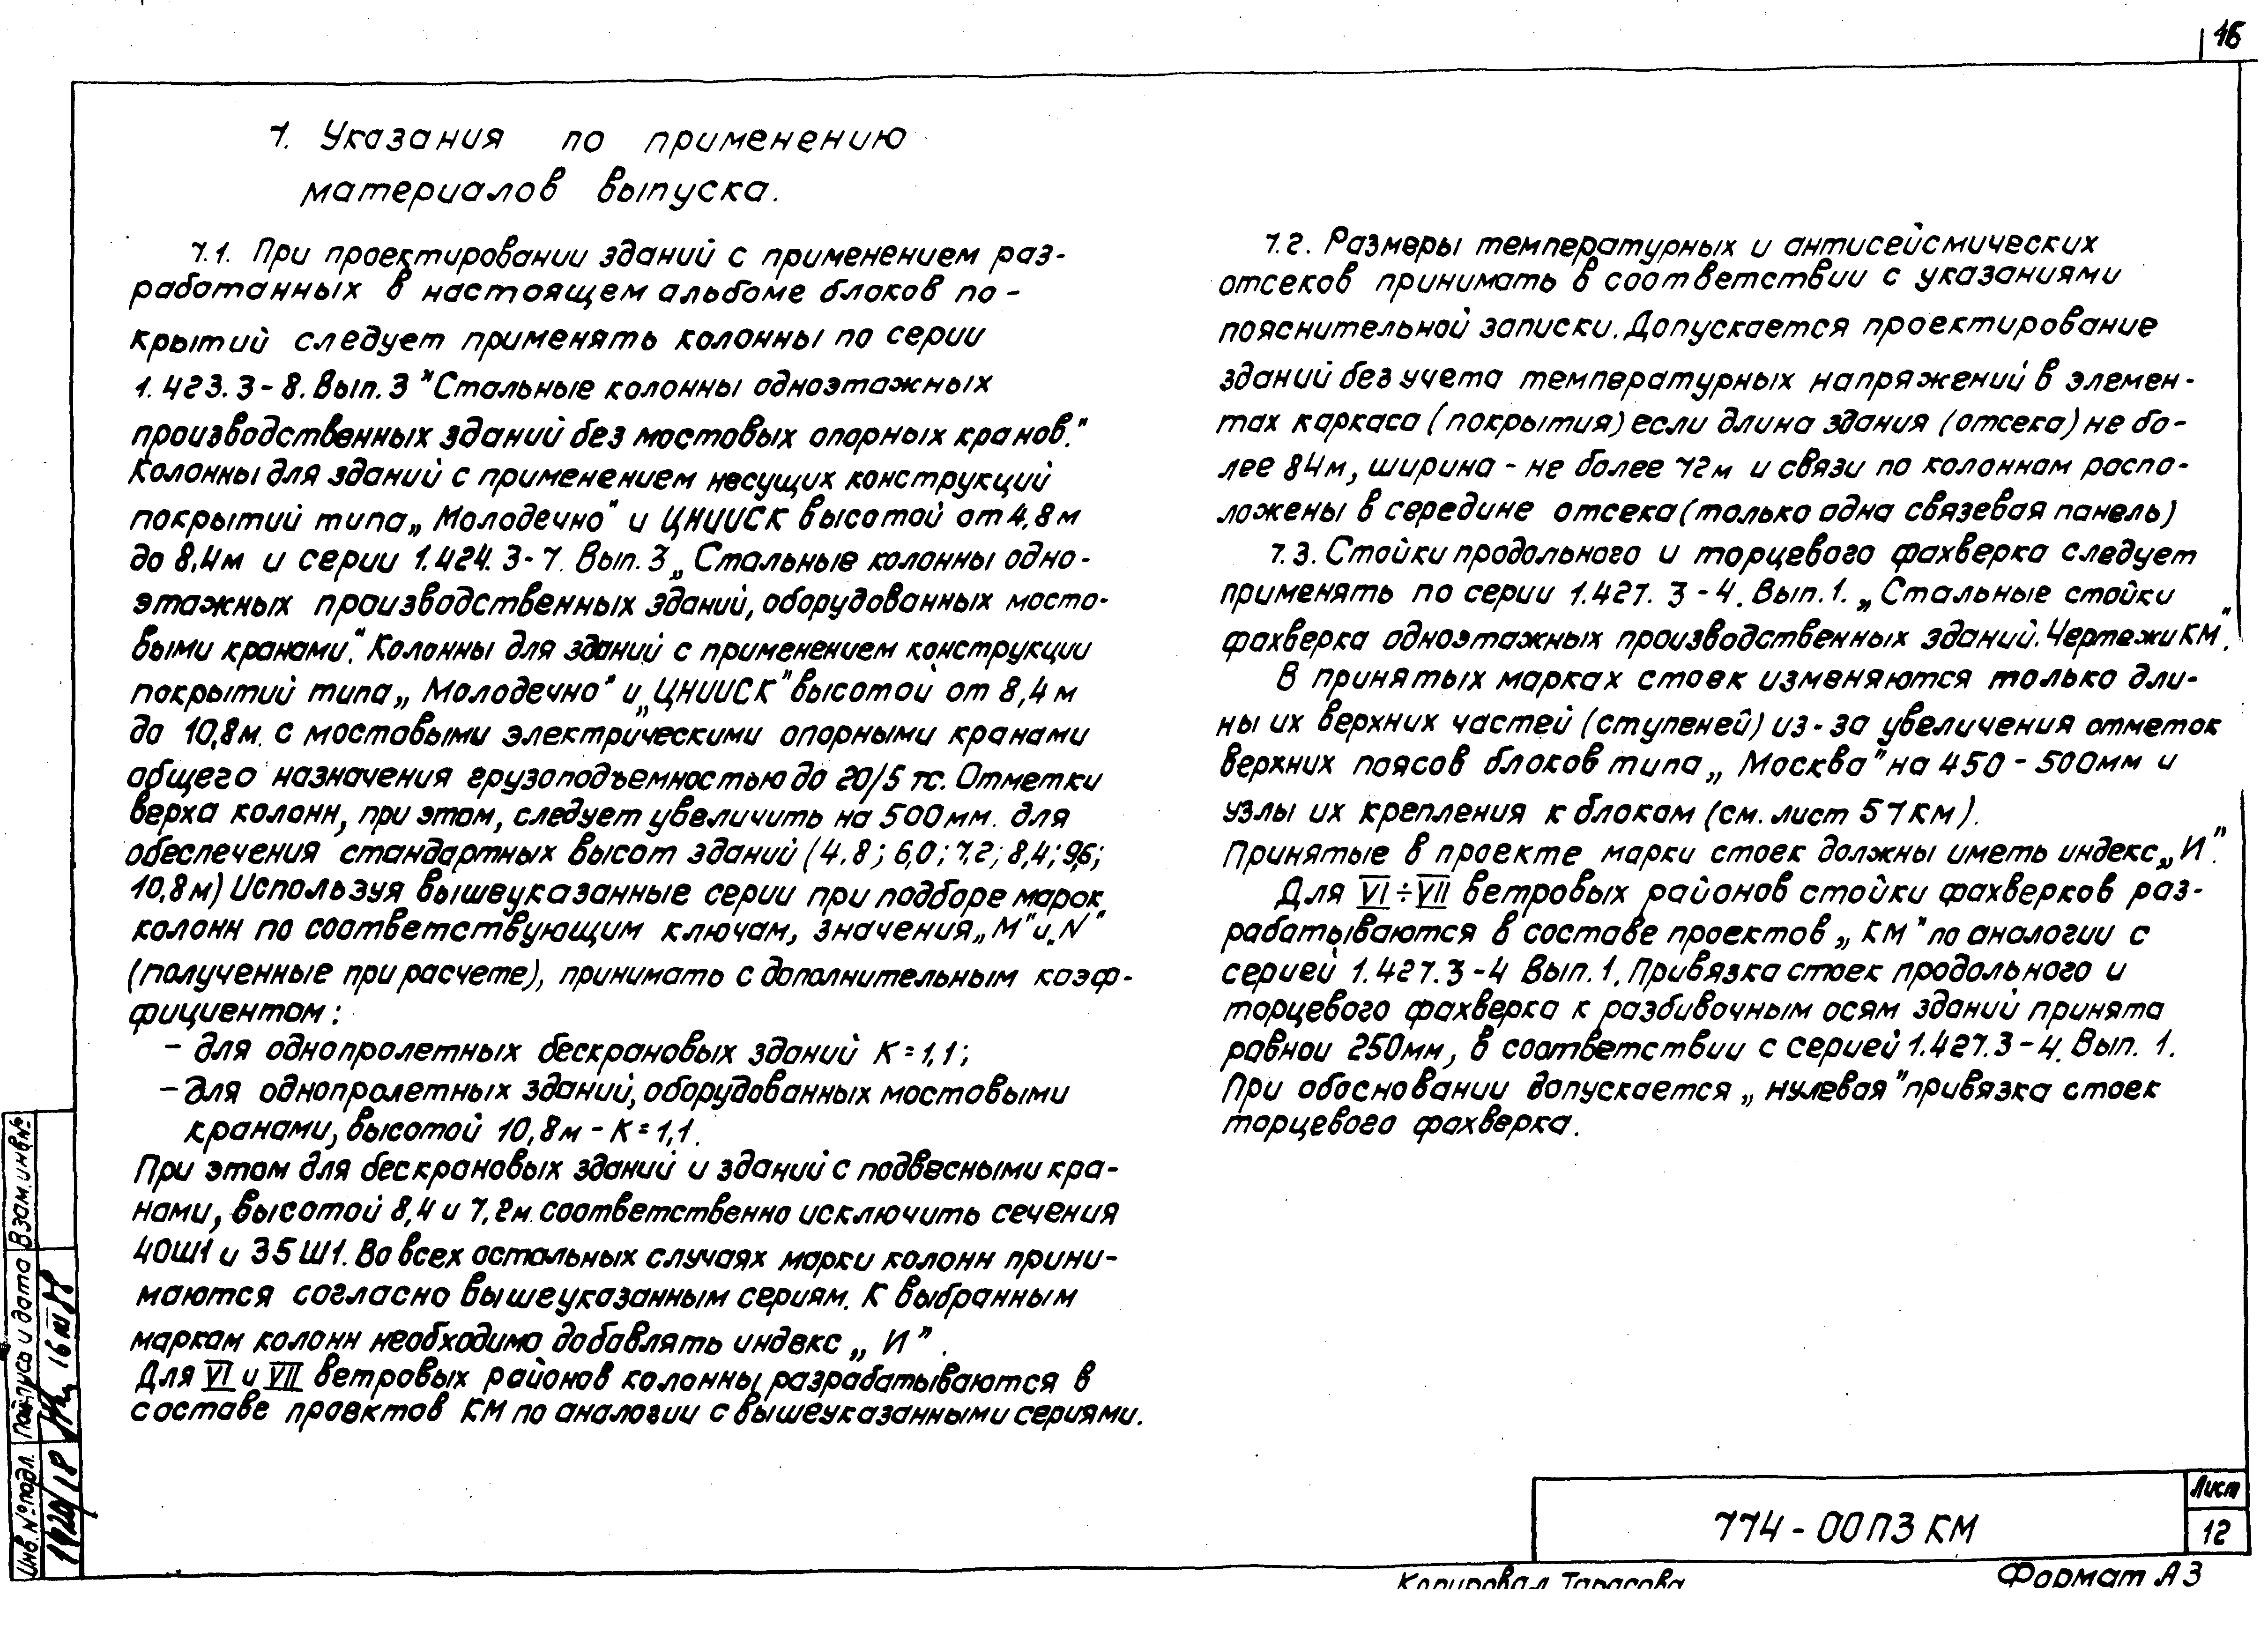 16
7. Указания по применению
материалов выпуска.
7.1. При проектировании зданий с применением раз-
работанных в настоящем альбоме блоков по-
крытий следует применять колонны по серии
1.423.3-8. Вып. 3 "Стальные колонны одноэтажных
производственных зданий без мостовых опорных кранов."
Колонны для зданий с применением несущих конструкций
покрытий типа „Молодечно" и ЦНИИСК высотой от 4,8м
до 8,4м и серии 1.424.3-7. Вып. 3 „Стальные колонны одно-
этажных производственных зданий, оборудованных мосто-
выми кранами". Колонны для зданий с применением конструкции
покрытий типа „Молодечно" и „ЦНИИСК" высотой от 8,4м
до 10,8м. с мостовыми электрическими опорными кранами
общего назначения грузоподъемностью до 20/5 тс. Отметки
верха колонн, при этом, следует увеличить на 500мм. для
обеспечения стандартных высот зданий (4.8; 6,0; 7,2; 8,4; 9,6;
10,8м) Используя вышеуказанные серии при подборе марок
колонн по соответствующим ключам, значения „М" и „N"
(полученные при расчете), принимать с дополнительным коэф-
фициентом:
- для однопролетных бескрановых зданий К=1,1;
- для однопролетных зданий, оборудованных мостовыми
кранами, высотой 10,8м - К=1,1.
При этом для бескрановых зданий и зданий с подвесными кра-
нами, высотой 8,4 и 7,2м соответственно исключить сечения
40Ш1 и 35Ш1. Во всех остальных случаях марки колонн прини-
маются согласно вышеуказанным сериям. К выбранным
маркам колонн необходимо добавлять индекс „И".
Для VI и VII ветровых районов колонны разрабатываются в
составе проектов КМ по аналогии с вышеуказанными сериями.
7.2. Размеры температурных и антисейсмических
отсеков принимать в соответствии с указаниями
пояснительной записки. Допускается проектирование
зданий без учета температурных напряжений в элемен-
тах каркаса (покрытия) если длина здания (отсека) не бо-
лее 84м, ширина - не более 72м и связи по колоннам распо-
ложены в середине отсека (только одна связевая панель)
7.3. Стойки продольного и торцевого фахверка следует
применять по серии 1.427.3-4. Вып. 1. „Стальные стойки
фахверка одноэтажных производственных зданий. Чертежи КМ".
В принятых марках стоек изменяются только дли-
ны их верхних частей (ступеней) из-за увеличения отметок
верхних поясов блоков типа „Москва" на 450-500мм и
узлы их крепления к блокам (см. лист 57КМ).
Принятые в проекте марки стоек должны иметь индекс „И".
Для VI÷VII ветровых районов стойки фахверков раз-
рабатываются в составе проектов „КМ" по аналогии с
серией 1.427.3-4 Вып. 1. Привязка стоек продольного и
торцевого фахверка к разбивочным осям зданий принята
равной 250мм, в соответствии с серией 1.427.3-4. Вып. 1.
При обосновании допускается „нулевая" привязка стоек
торцевого фахверка.
Взам. инв.№
Подпись и дата
Инв. № подл.
774-00ПЗ КМ
Лист
12
Копировал Тарасова
Формат А3